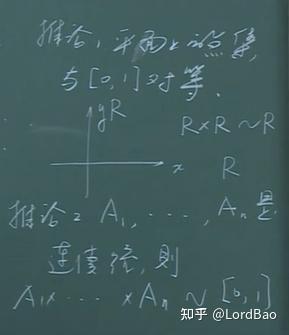 推论1 平面上的点集,
与[0,1]对等.
y R
R×R ~ R
x R
推论2 A₁, ⋯, Aₙ 是
连续统, 则
A₁× ⋯ ×Aₙ ~ [0,1]
知乎 @LordBao